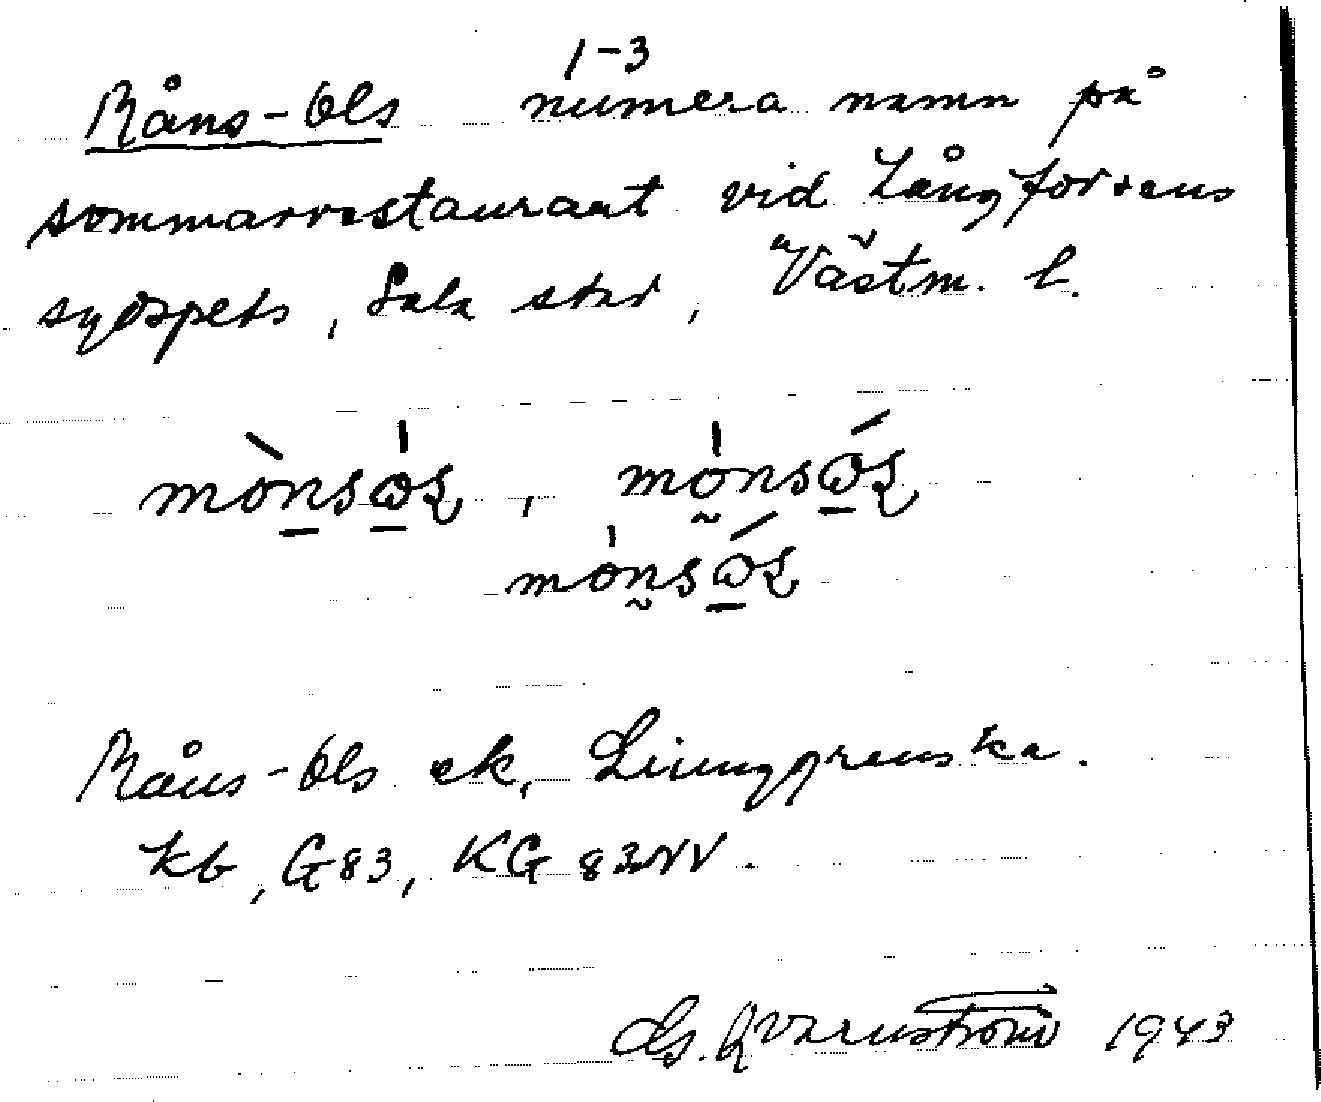 1-3
Måns-Ols numera namn på
sommarrestaurant vid Långforsens
sydspets, Sala stad, Västm. l.
mònsòʂ, mónsóʂ
mónsóʂ
Måns-Ols ek, Ljunggrenska.
kb, G83, KG 83NV.
Kvarnström 1943